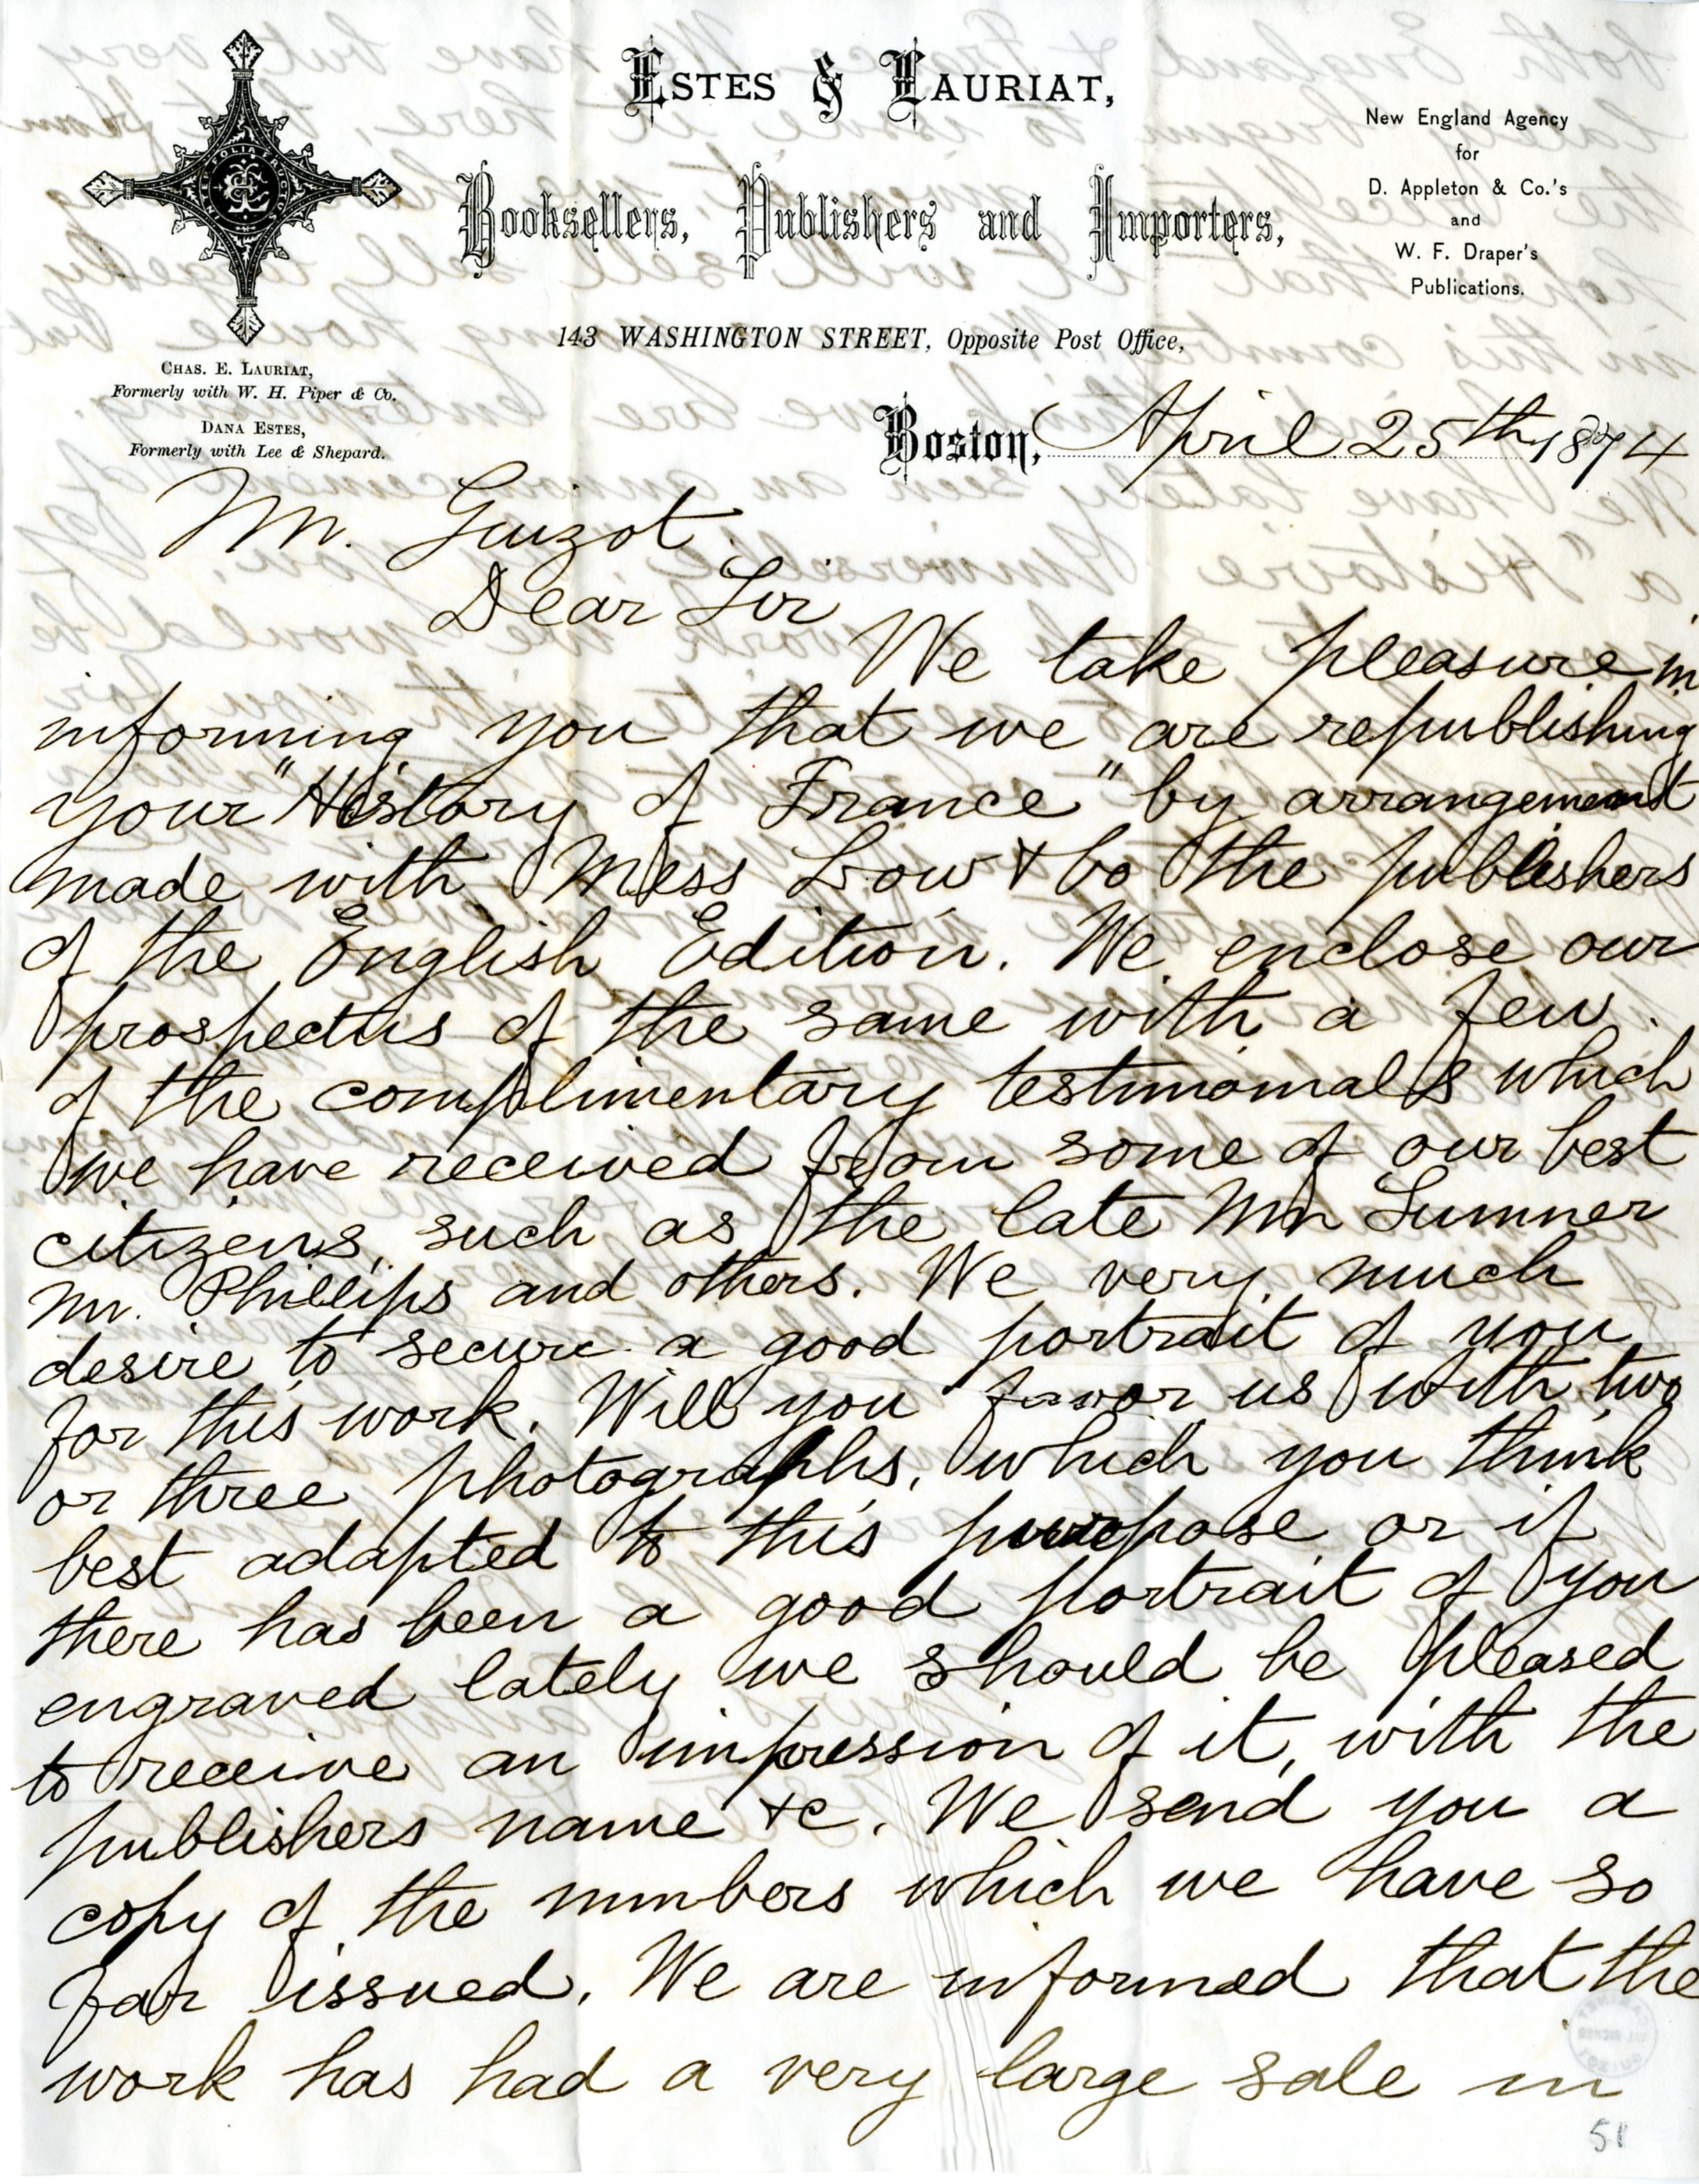 ESTES & LAURIAT,
Booksellers, Publishers and Importers,
143 WASHINGTON STREET, Opposite Post Office,
New England Agency
for
D. Appleton & Co.'s
and
W. F. Draper's
Publications.
CHAS. E. LAURIAT,
Formerly with W. H. Piper & Co.
DANA ESTES,
Formerly with Lee & Shepard.
Boston, April 25th 1874
Mr. Guizot.
Dear Sir
We take pleasure in
informing you that we are republishing
your "History of France" by arrangement
made with Mess Low & Co the publishers
of the English Edition. We enclose our
prospectus of the same with a few
of the complimentary testimonials which
we have received from some of our best
citizens, such as the late Mr Sumner
Mr. Phillips and others. We very much
desire to secure a good portrait of you
for this work. Will you favor us with two
or three photographs, which you think
best adapted to this purpose or if
there has been a good portrait of you
engraved lately we should be pleased
to receive an impression of it, with the
publishers name &c. We send you a
copy of the numbers which we have so
far issued. We are informed that the
work has had a very large sale in
51